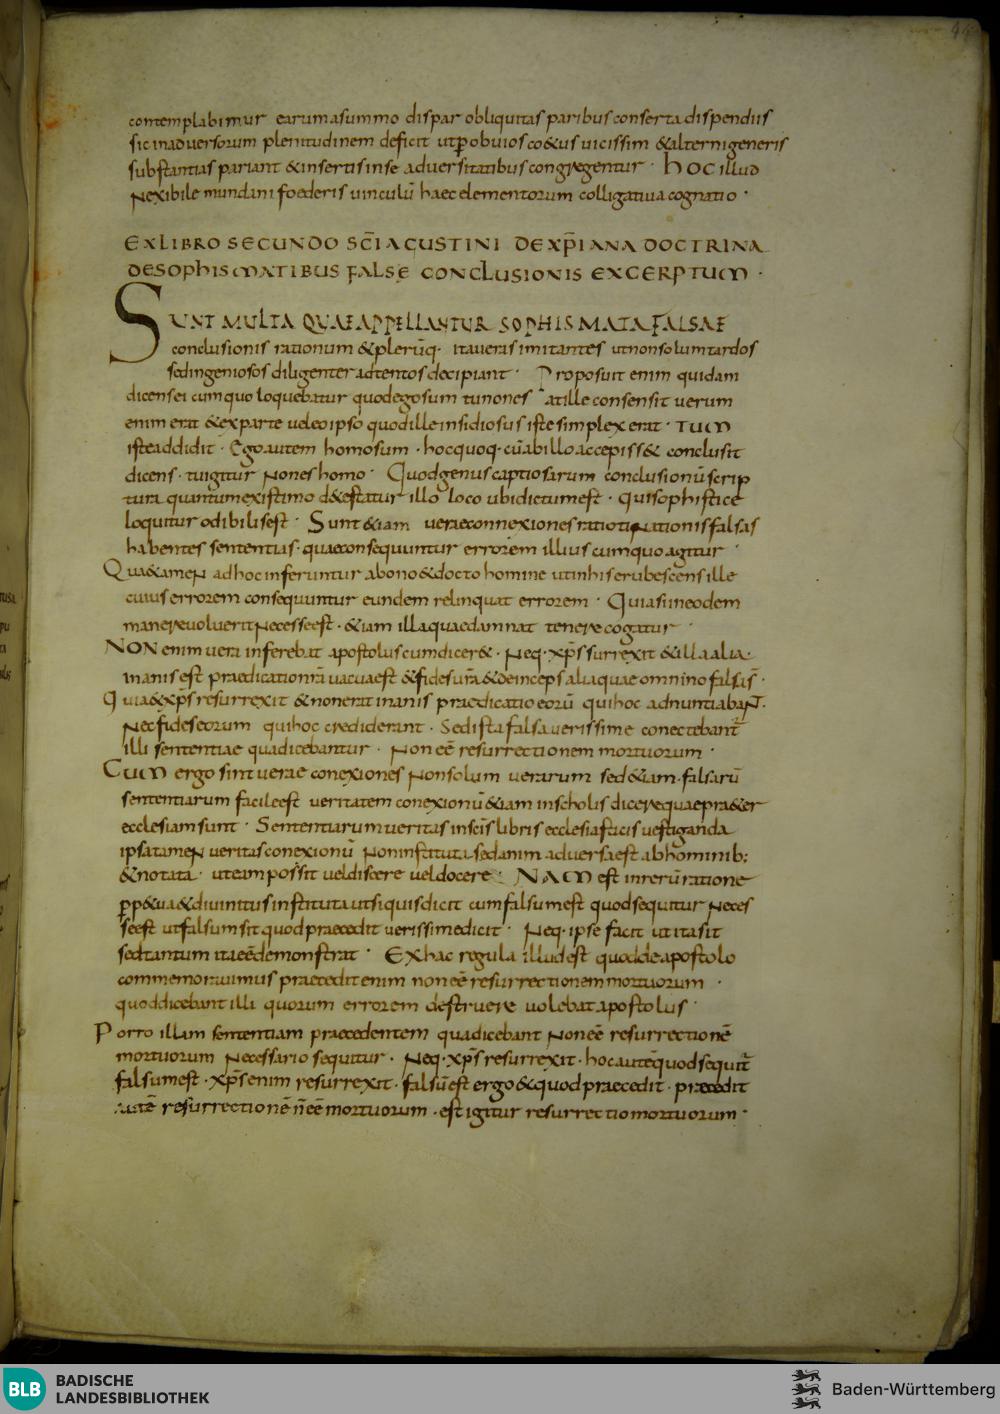 44
contemplabimur earum a summo dispar obliquitas paribus conserta dispendiis
sic in aduersorum plenitudinem deficit ut ꝑ obuios co&us uicissim &alternigeneris
substantias pariant &insertis in se aduersitatibus congregentur · hoc illud
Nexibile mundani foederis uinculū haec elementorum colligatiua cognatio ·
EX LIBRO SECUNDO SC̄I AGUSTINI DE XP̄IANA DOCTRINA
DE SOPHISMATIBUS FALSE CONCLUSIONIS EXCERPTUM ·
SUNT MULTA QUAE APPELLANTUR SOPHISMATA FALSAE
conclusionis rationum &plerūq· ita ueras imitantes ut non solum tardos
sed ingeniosos diligenter adtentos decipiant · Proposuit enim quidam
dicens ei cum quo loquebatur quod ego sum tu non es at ille consensit uerum
enim erat &ex parte uel eo ipso quod ille insidiosus iste simplex erat · TUM
iste addidit · Ego autem homo sum · hoc quoq· cū ab illo accepiss& conclusit
dicens · tu igitur Non es homo · Quod genus captiosarum conclusionū scrip
tura quantum existimo d&estatur illo loco ubi dictum est · qui sophistice
loquitur odibilis est · Sunt &iam uerae connexiones ratiotiNationis falsas
habentes sententias · quae consequuntur errorem illius cum quo agitur ·
Quae tameN ad hoc inferuntur a bono &docto homine ut in his erubescens ille
cuius errorem consequuntur eundem relinquat errorem · Quia si in eodem
manere uoluerit Necesse est · &iam illa quae damnat tenere cogatur ·
NON enim uera inferebat apostolus cum dicer& · Neq· xp̄s surrexit &illa alia·
inanis est praedicatio nr̄a uacua est &fides ur̄a &deinceps alia quae omnino falsis̄ ·
Quia &xp̄s resurrexit &non erat inanis praedicatio eorū qui hoc adnuntiabaNT·
Nec fides eorum qui hoc crediderant · Sed ista falsa uerissime conectebant̄
illi sententiae qua dicebantur · Non eē resurrectionem mortuorum ·
CUM ergo sint uerae conexiones Non solum uerarum sed &iam · falsarū
sententiarum facile est ueritatem conexionū &iam in scholis dicere quae pra&er
ecclesiam sunt · Sententiarum ueritas in sc̄is libris ecclesiasticis uestiganda
ipsa tameN ueritas conexionū Non instituta sed animaduersa est ab hominib;
&notata · ut eam possit uel discere uel docere · NAM est in rerū ratione
ꝑp&ua &diuinitus instituta ut si quis dicit cum falsum est quod sequitur Neces
se est ut falsum sit quod praecedit uerissime dicit · Neq· ipse facit ut ita sit
sed tantum ita eē demonstrat · Ex hac regula illud est quod de apostolo
commemorauimus praecedit enim non eē resurrectionem mortuorum ·
quod dicebant illi quorum errorem destruere uolebat apostolus ·
Porro illam sententiam praecedentem qua dicebant Non eē resurrectionē
mortuorum Necessario sequitur · Neq· xp̄s resurrexit · hoc autē quod sequit̄
falsum est · xp̄s enim resurrexit · falsū est ergo &quod praecedit · praecedit
autē resurrectionē n̄ eē mortuorum · est igitur resurrectio mortuorum ·
BLB BADISCHE
LANDESBIBLIOTHEK
Baden-Württemberg